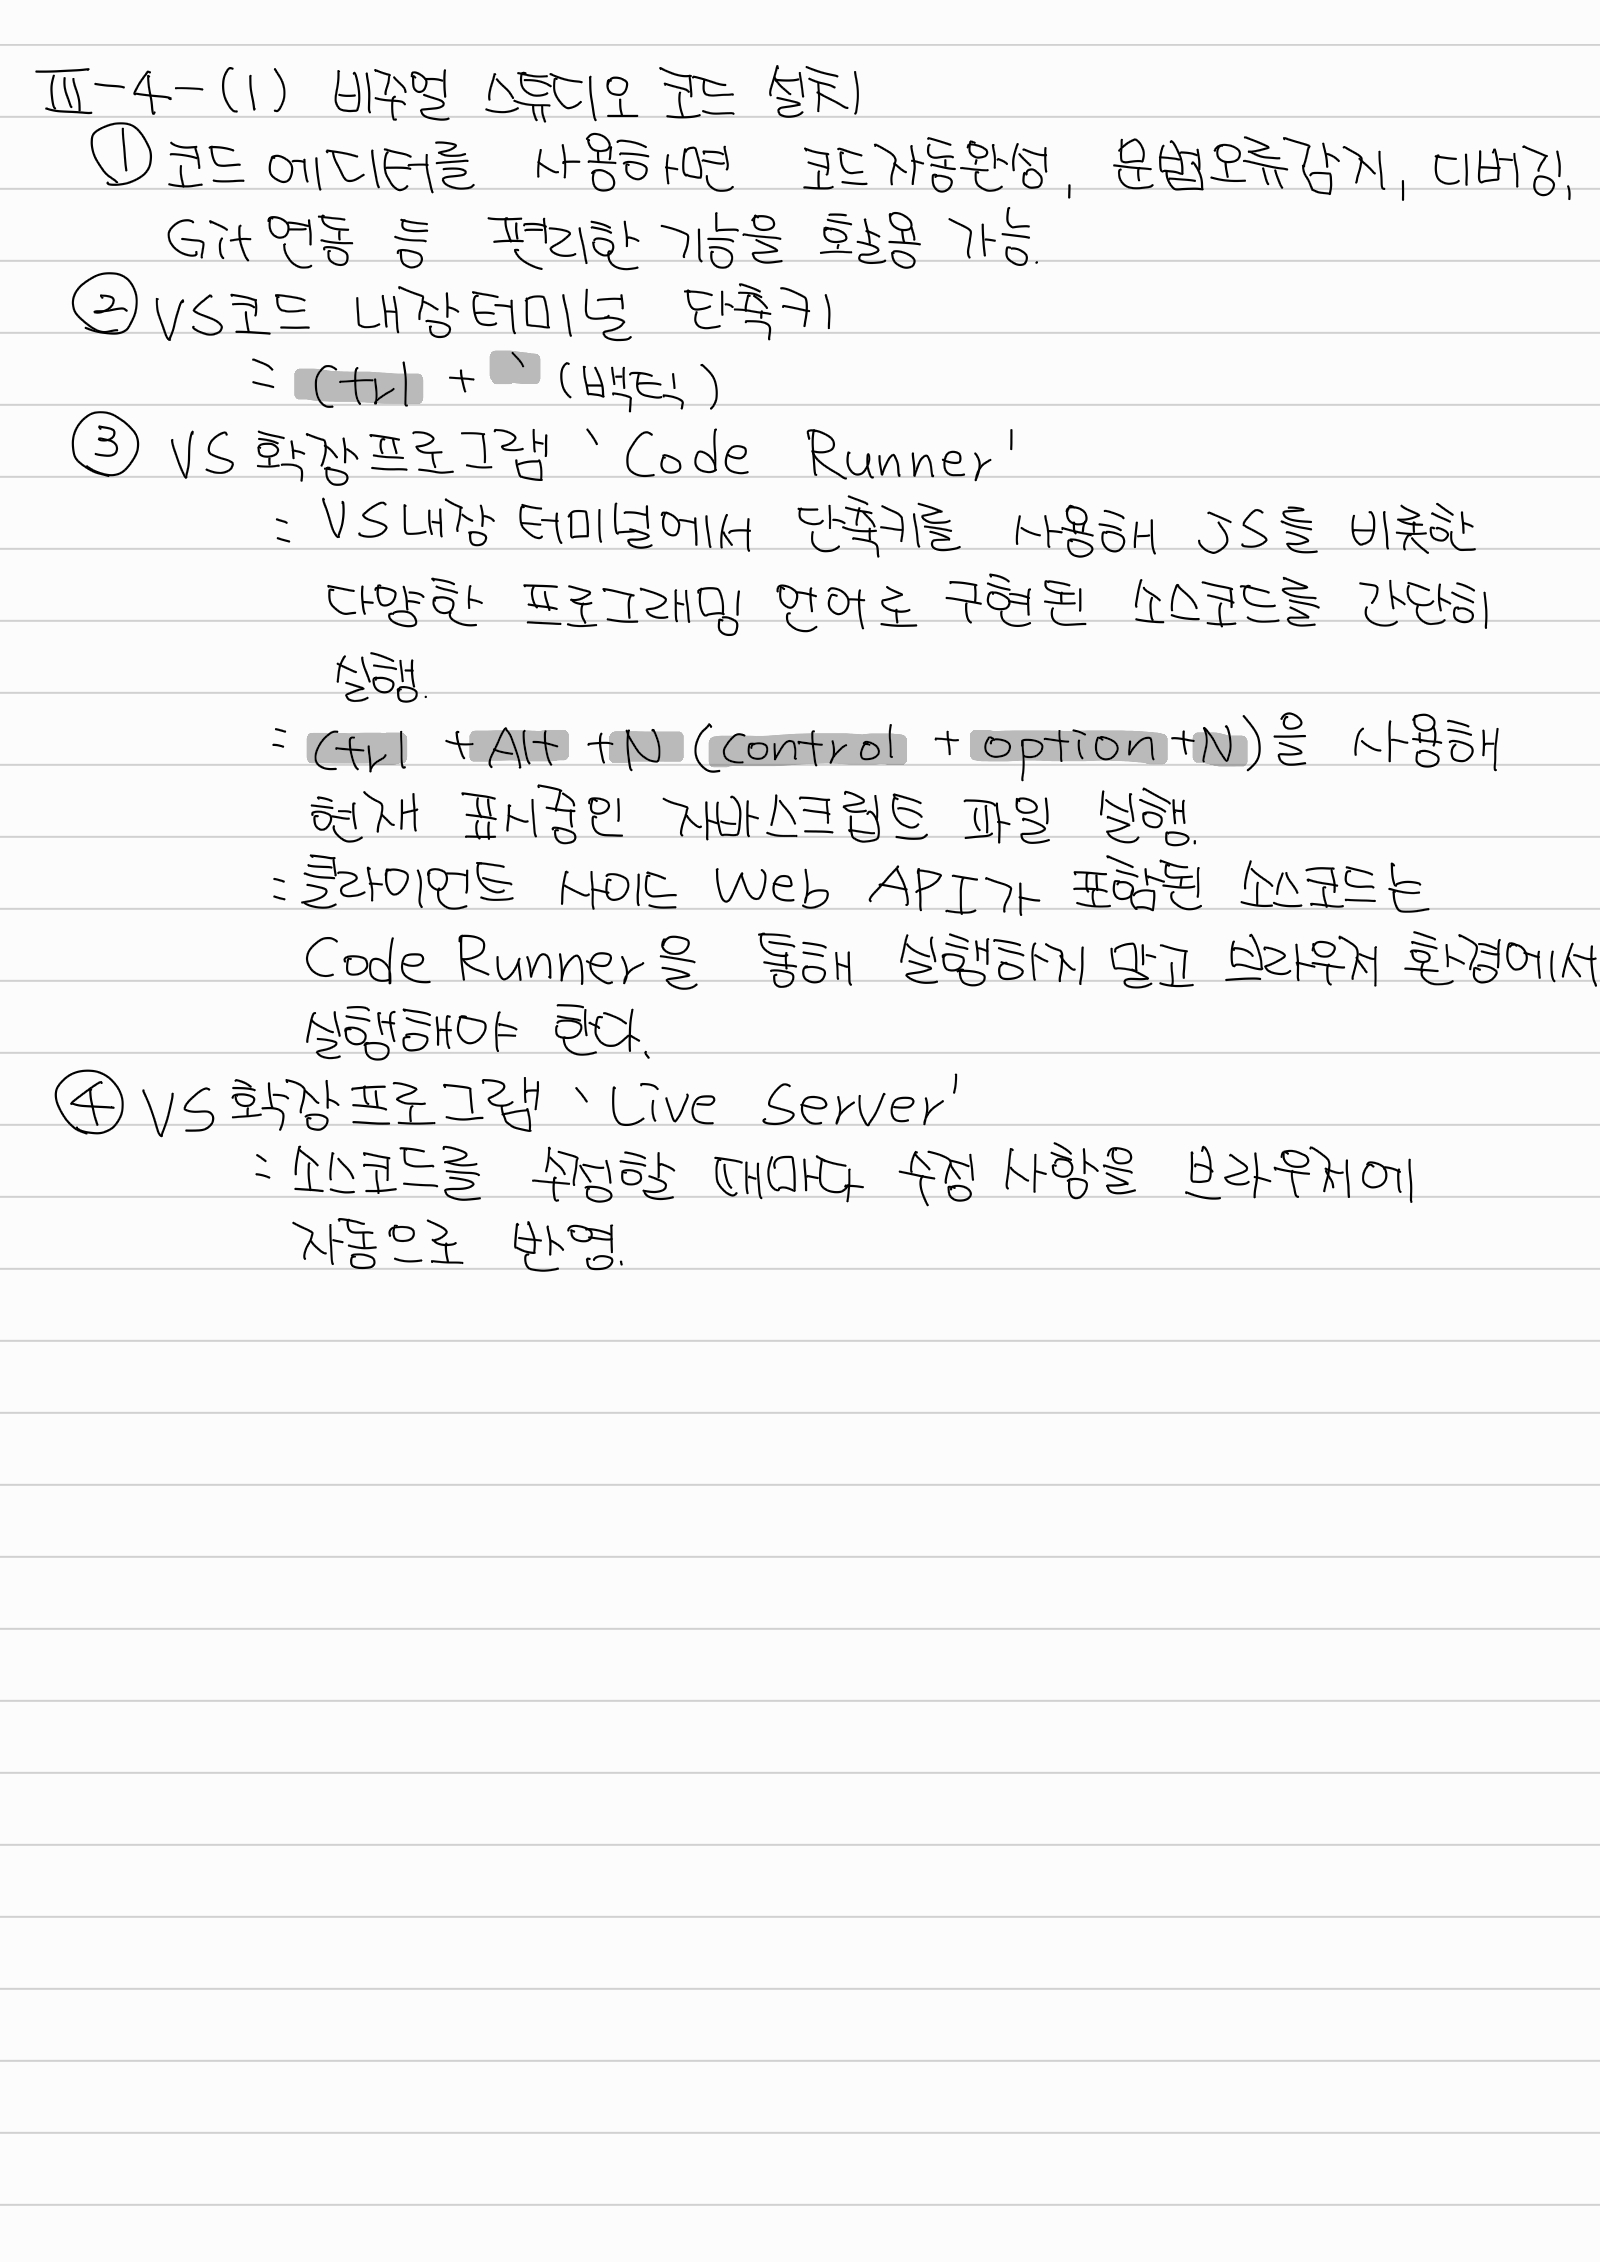 III-4-(1) 비쥬얼 스튜디오 코드 설치
① 코드 에디터를 사용하면 코드자동완성, 문법오류감지, 디버깅,
Git 연동 등 편리한 기능을 활용 가능.
② VS코드 내장터미널 단축키
= Ctrl + ` (백틱)
③ VS 확장프로그램 `Code Runner'
= VS내장 터미널에서 단축키를 사용해 JS를 비롯한
다양한 프로그래밍 언어로 구현된 소스코드를 간단히
실행.
= Ctrl + Alt + N (control + option + N)을 사용해
현재 표시중인 자바스크립트 파일 실행.
= 클라이언트 사이드 Web API가 포함된 소스코드는
Code Runner을 통해 실행하지 말고 브라우저 환경에서
실행해야 한다.
④ VS 확장프로그램 `Live Server'
= 소스코드를 수정할 때마다 수정 사항을 브라우저에
자동으로 반영.